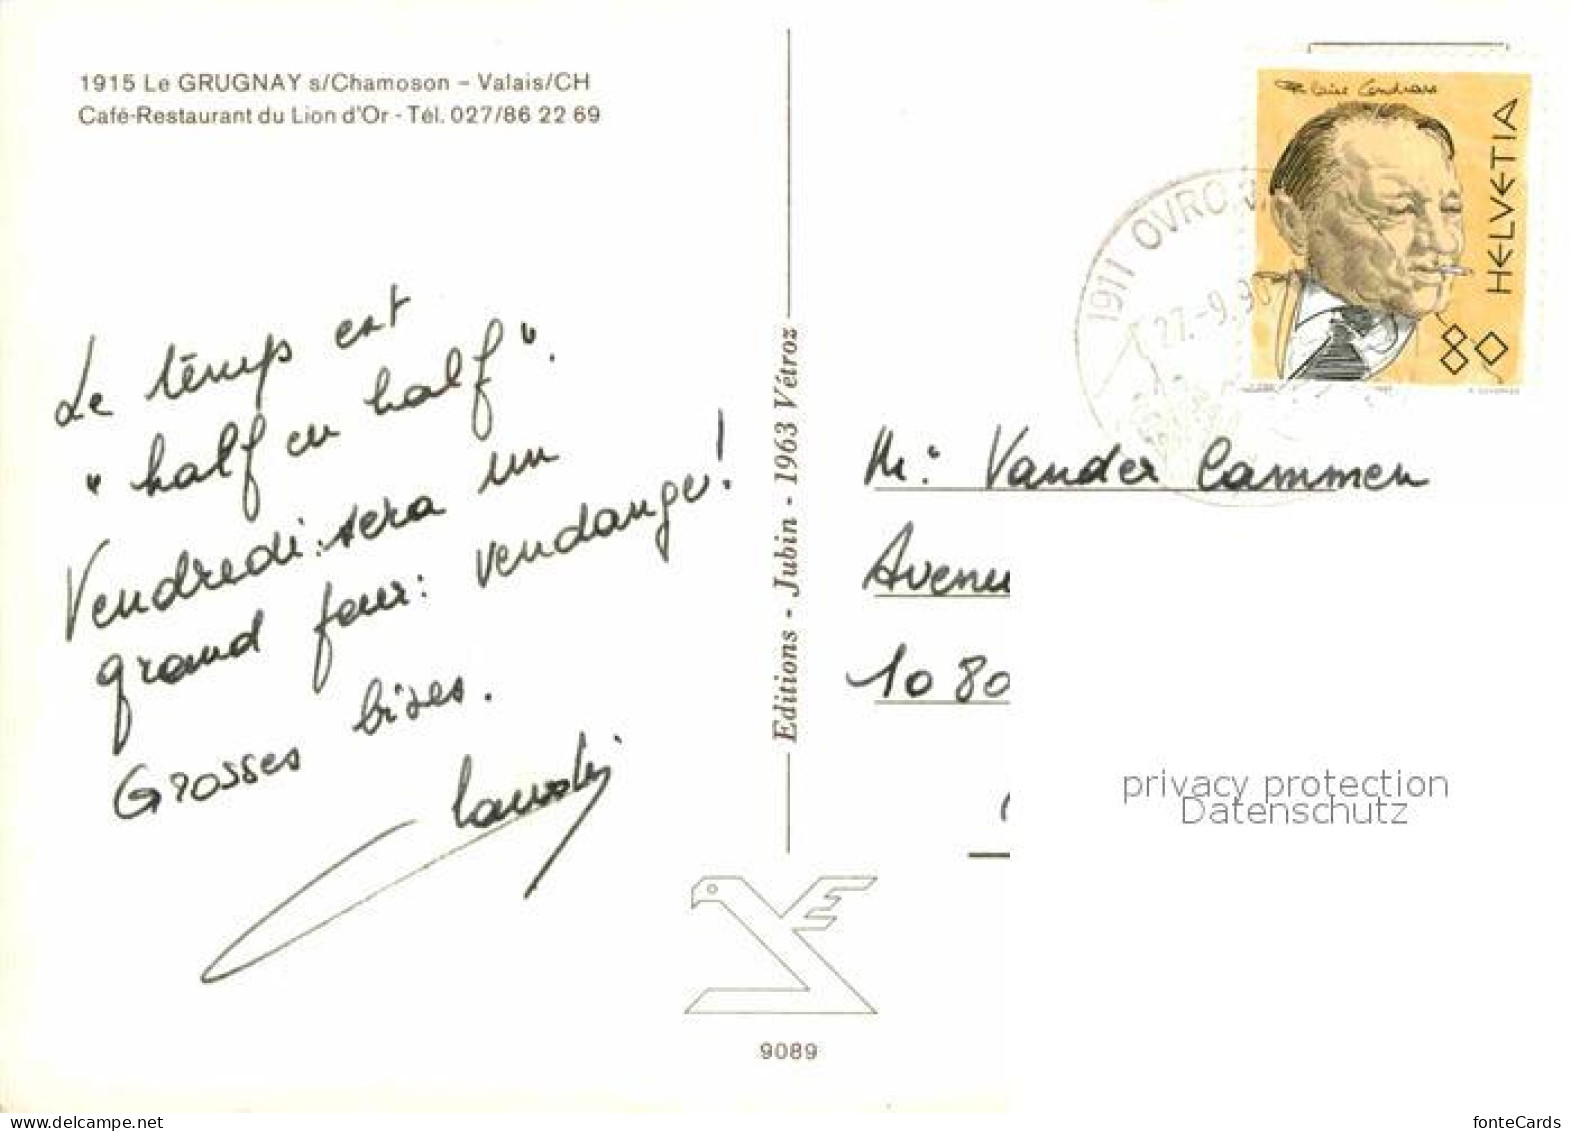 1915 Le GRUGNAY s/Chamoson – Valais/CH
Café-Restaurant du Lion d'Or - Tél. 027/86 22 69
Le temps est
"half en half".
Vendredi: sera un
grand jour: vendange!
Grosses bises.
Editions - Jubin - 1963 Vétroz
9089
Blaise Cendrars
HELVETIA
80
1911 OVRONNAZ
27.-9.90
Mr: Vander Cammen
Avenu
1080
privacy protection
Datenschutz
delcampe.net
fonteCards